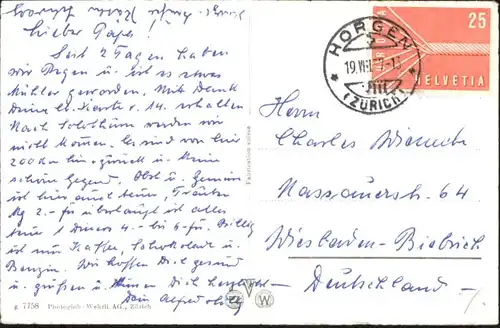 Lieber Papa!
Seit 2 Tagen haben
wir Regen u. ist es etwas
kühler geworden. Mit Dank
Deine Karte v. 14. erhalten
Nach Solothurn werden wir
nicht kommen. Es sind von hier
200 km hin + zurück u. keine
schöne Gegend. Obst u. Gemüse
ist hier auch teuer, Trauben
kg 2.- fr überhaupt ist alles
teuer 1 4.- bis 6- fr. Billig
ist nur Kaffee, Schokolade u.
Benzin. Wir hoffen Dich gesund
u. grüßen u. Dich herzlichst
Dein Alfred
g 7158 Photoglob-Wehrli AG., Zürich
Fabrication suisse
HORGEN
19.VIII.
(ZÜRICH)
25
HELVETIA
Herrn
Charles
Nassauerstr. 64
Wiesbaden-Biebrich
Deutschland